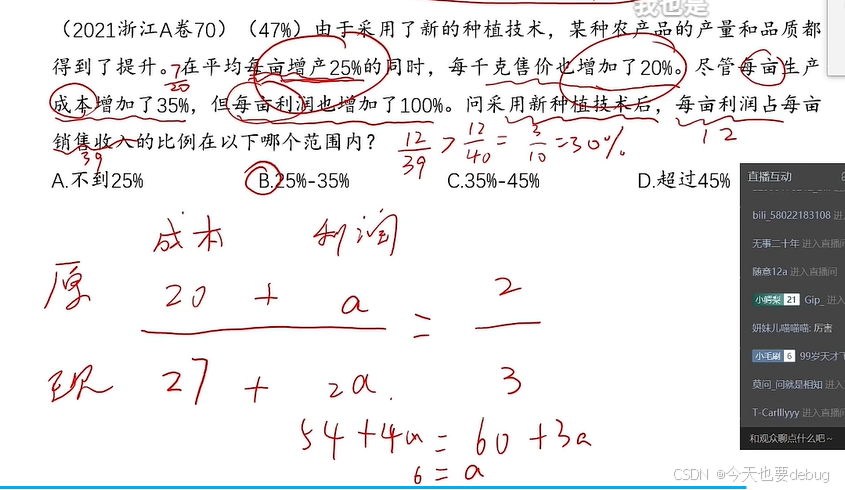 我也是
（2021浙江A卷70）（47%）由于采用了新的种植技术，某种农产品的产量和品质都
得到了提升。在平均每亩增产25%的同时，每千克售价也增加了20%。尽管每亩生产
7
20
成本增加了35%，但每亩利润也增加了100%。问采用新种植技术后，每亩利润占每亩
12
销售收入的比例在以下哪个范围内？
39
12/39 > 12/40 = 3/10 =30%
A.不到25% B.25%-35% C.35%-45% D.超过45%
成本 利润
原 20 + a = 2
现 27 + 2a. 3
54+4a = 60+3a
6 = a
直播互动
bili_58022183108 进入
无事二十年 进入直播间
随意12a 进入直播间
小婷梨 21 Gip_ 进入
妍妹儿喵喵喵: 厉害
小毛刷 6 99岁天才
莫问_问就是相知 进入
T-Carlllyyy 进入直播间
和观众聊点什么吧~
CSDN @今天也要debug